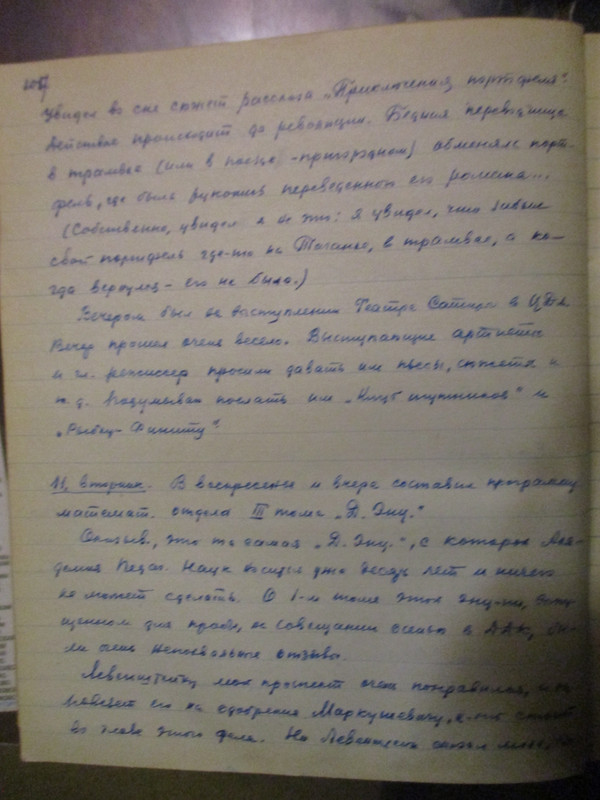 Увидел во сне сюжет рассказа „Приключения портфеля“.
Действие происходит до революции. Бедняк переводчица
в трамвае (или в поезде - пригородном) обменяли порт-
фель, где была рукопись переведенного его романа...
(Собственно, увидел я не это: я увидел, что забыл
свой портфель где-то на Таганке, в трамвае, а ко-
гда вернулся - его не было.)
Вечером был на выступлении Театра Сатиры в ЦДЛ.
Вечер прошел очень весело. Выступающие артисты
и гл. режиссер просили давать им пьесы, сюжеты и
т.д. Надумывал послать им „Клуб шутников“ и
11, вторник. В воскресенье и вчера составил программу
математ. отдела III тома „Д. Энц.“
Оказыв., это та самая „Д. Энц.“, с которой Ака-
демия Педаг. Наук носится уже десять лет и ничего
не может сделать. О 1-м томе этой энц-ии,
для пробы, на совещании в ДДК, бы-
ли очень отзывы.
Левенштейну мой проспект очень понравился, и он
повезет его на одобрение Маркушевичу, стоит
во главе этого дела. Но Левенштейн сказал мне,